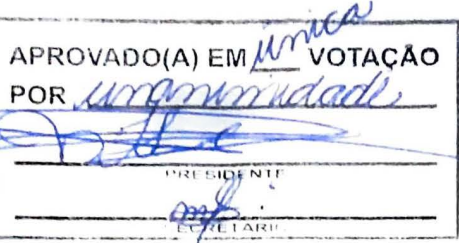 APROVADO(A) EM única VOTAÇÃO
POR unanimidade
PRESIDENTE
SECRETÁRIO